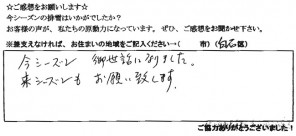 ☆ご感想をお願いします☆
今シーズンの排雪はいかがでしたか？
お客様の声が、私たちの原動力になっています。ぜひ、ご感想をお聞かせ下さい。
※差支えなければ、お住まいの地域をご記入ください→( 市) (白石区)
今シーズン 御世話になりました。
来シーズンも お願い致します。
ご協力ありがとうございました！